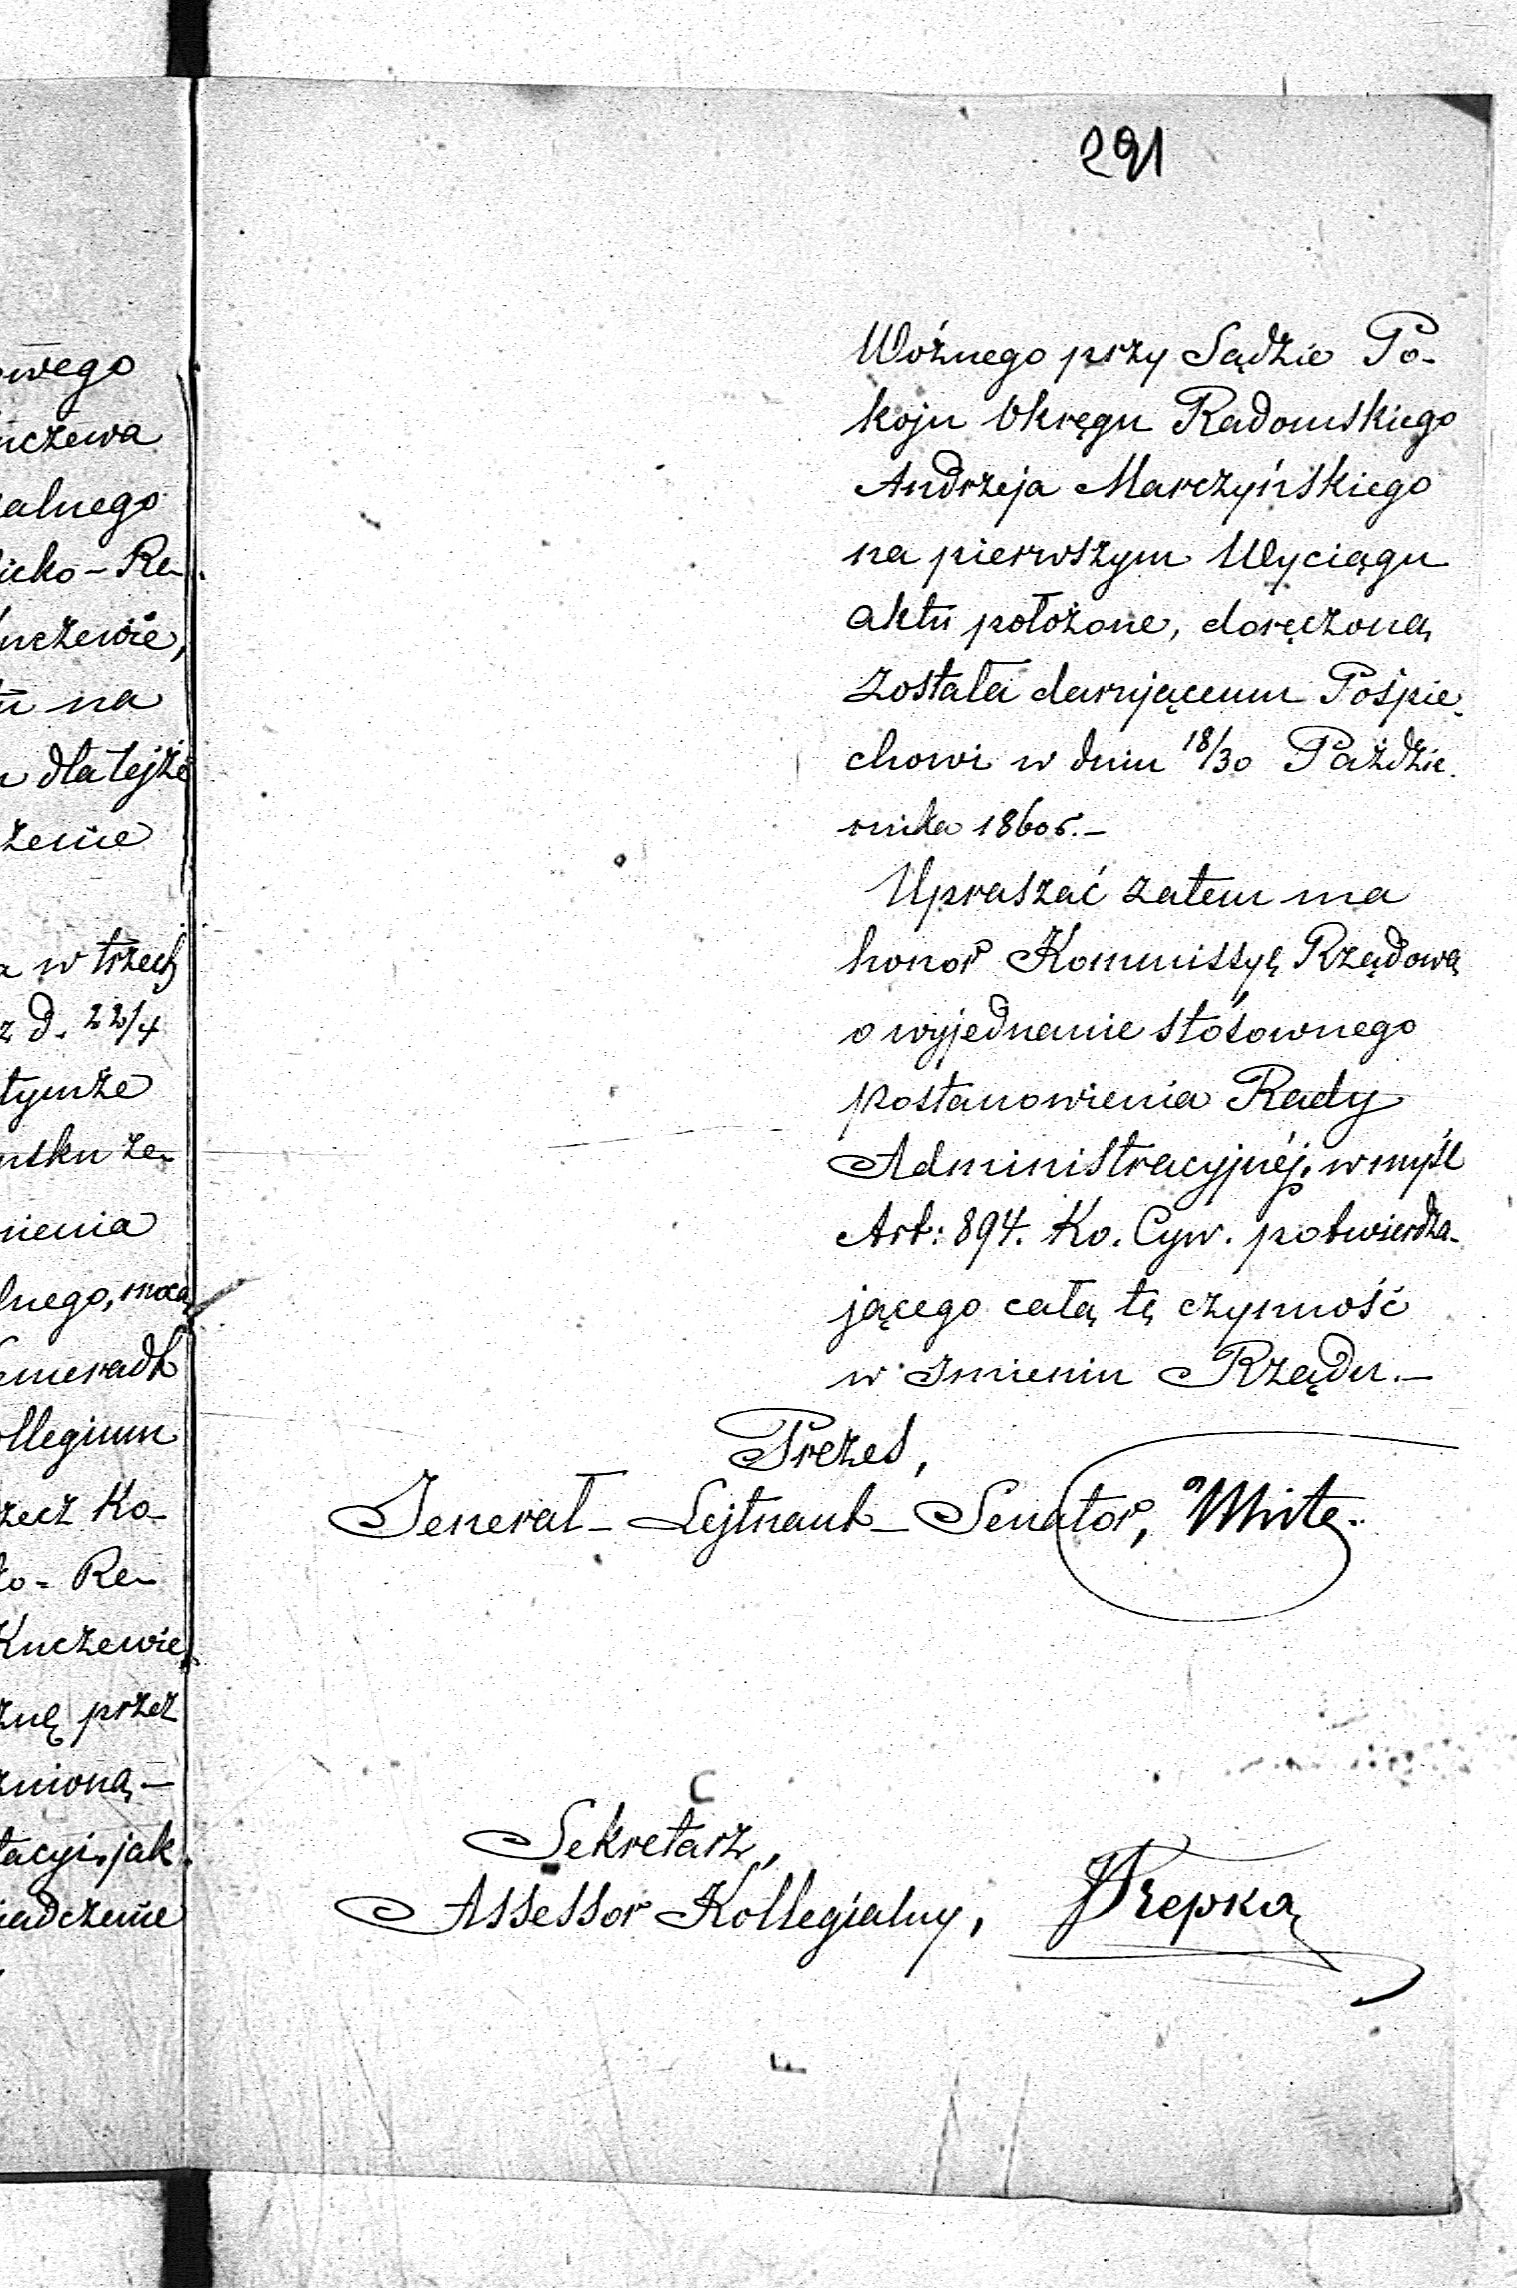 owego
uczewa
ralnego
icko-Re-
uczewie,
tu na
u dla tejże
żenie
a w trzech
z d. 22/4
tymże
ńsku ze-
nienia
lnego, mocą
emeradt
ollegium
rzecz Ko-
ko-Re-
Kuczewie
znę przez
znioną —
tacyi, jak
iadczenie
291
Woźnego przy Sądzie Po-
koju Okręgu Radomskiego
Andrzeja Marczyńskiego
na pierwszym Wyciągu
aktu położone, doręczoną
została darującemu Pośpie-
chowi w dniu 18/30 Paździe-
rnika 1860 r. —
Upraszać zatem ma
honor Kommissyę Rządową
o wyjednanie stósownego
postanowienia Rady
Administracyjnéj, w myśl
Art: 894. Ko. Cyw. potwierdza-
jącego całą tę czynność
w Imieniu Rządu. —
Prezes,
Jenerał-Lejtnant-Senator,
Sekretarz,
Assessor Kollegialny, Rzepka